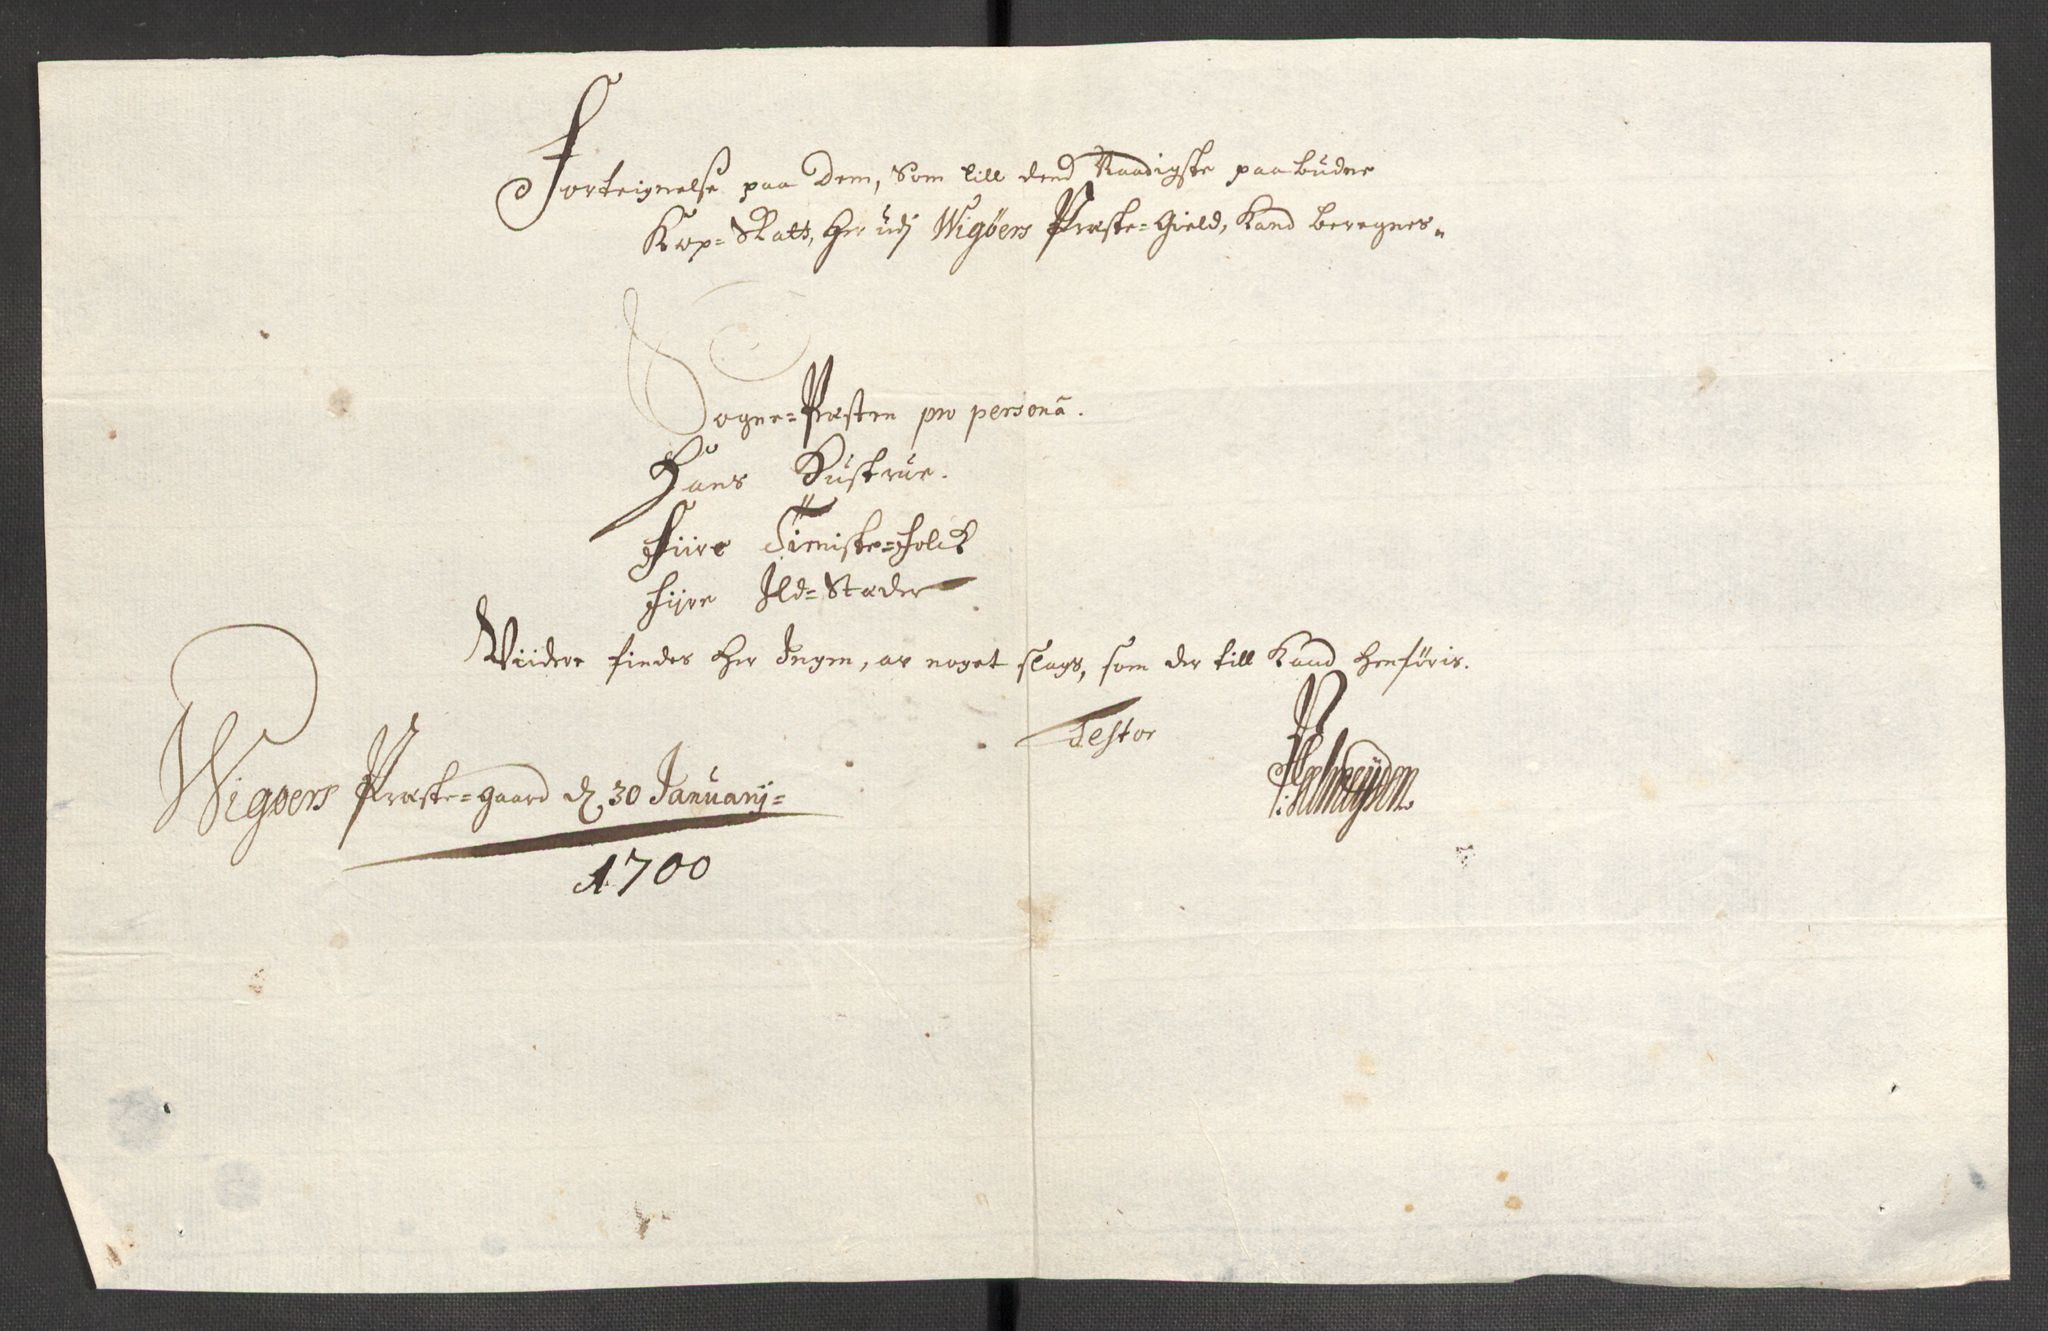 Forteignelse paa Dem, Som till dend Naadigste paabudne
Kop=Skatt, Her udj Wigøers Præste=Gield, Kand beregnes„
Sogne=Præsten pro personâ.
Hans Hustrue.
Fiire Tieniste=Folck
Fijre Ild=Stæder
Viidere findes Her Ingen, aff noget slags, som der till Kand Henføris.
Testor
Wigøers Præste=gaard d. 30 Januarij=
1700